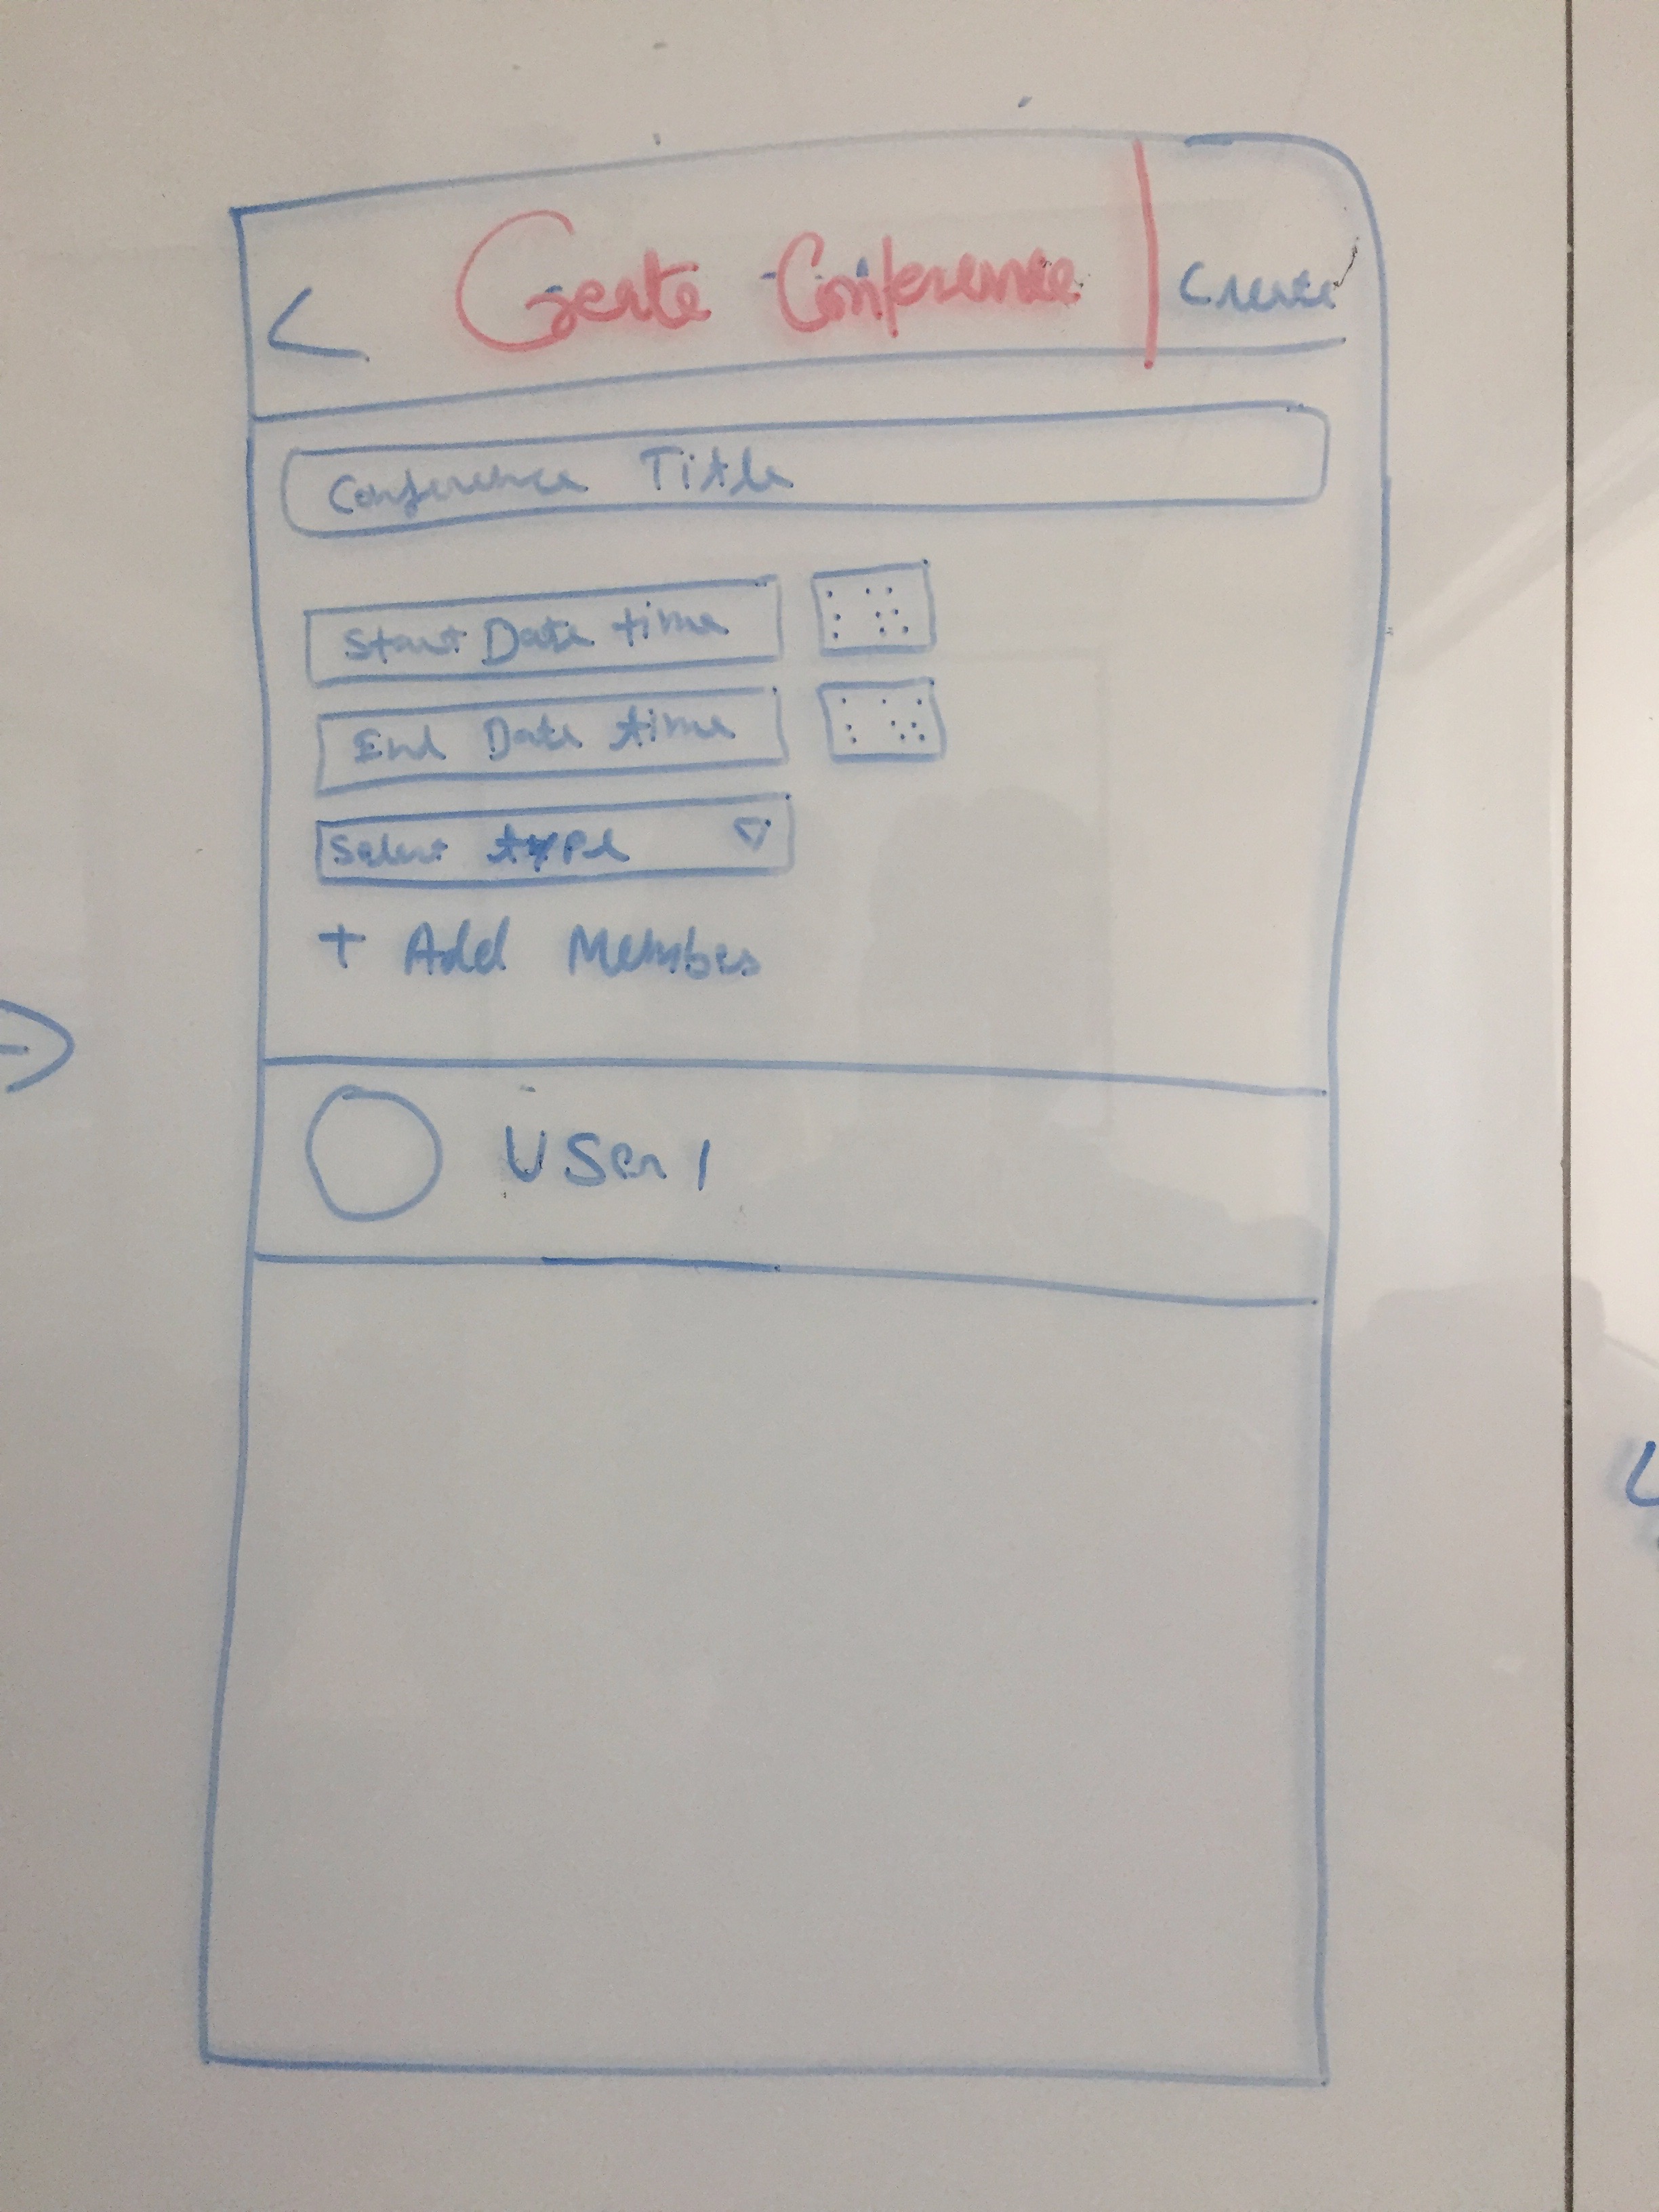 < Create Conference Create
Conference Title
Start Date time
End Date time
Select type
+ Add Member
User 1